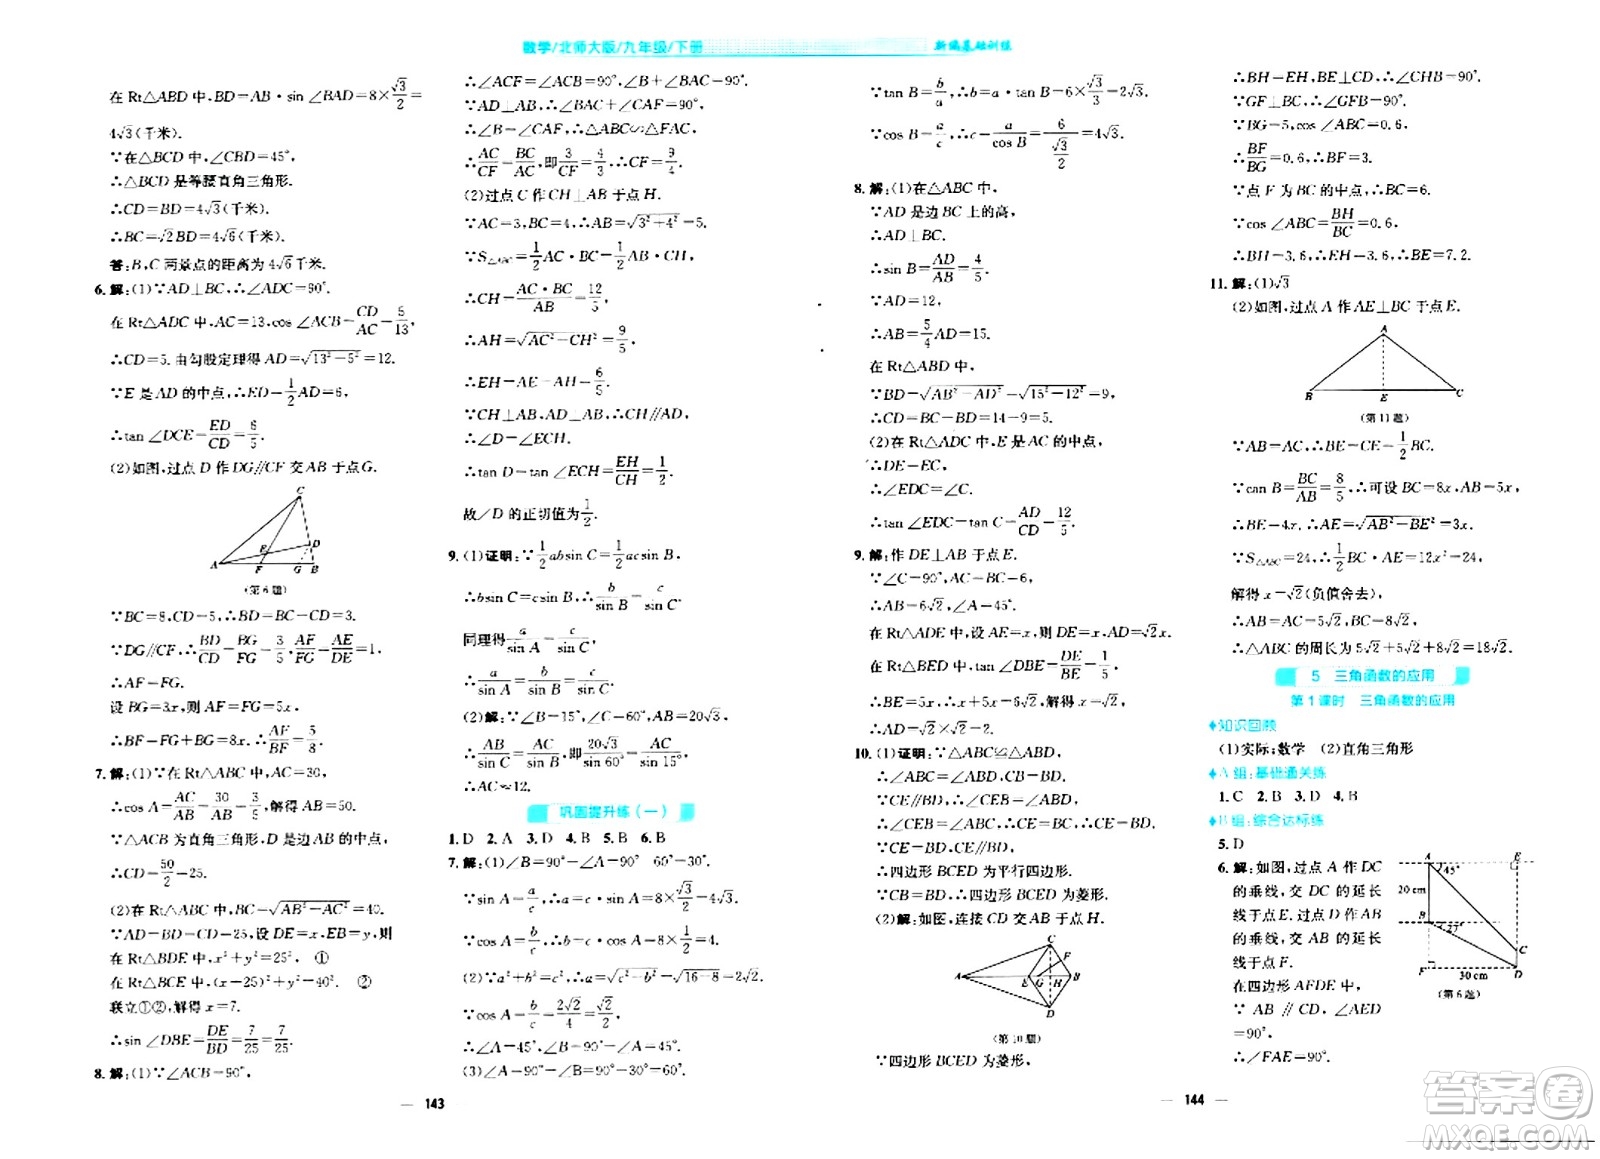 数学/北师大版/九年级/下册
新编基础训练
在 Rt△ABD 中,BD=AB·sin∠BAD=8×√3/2=
4√3(千米).
∵在△BCD 中,∠CBD=45°,
∴△BCD 是等腰直角三角形.
∴CD=BD=4√3(千米).
∴BC=√2BD=4√6(千米).
答:B,C 两景点的距离为 4√6 千米.
6. 解:(1)∵AD⊥BC,∴∠ADC=90°.
在 Rt△ADC 中,AC=13,cos∠ACB=CD/AC=5/13,
∴CD=5. 由勾股定理得 AD=√(13²-5²)=12.
∵E 是 AD 的中点,∴ED=1/2AD=6,
∴tan∠DCE=ED/CD=6/5.
(2)如图,过点 D 作 DG∥CF 交 AB 于点 G.
C
D
E
A F G B
(第 6 题)
∵BC=8,CD=5,∴BD=BC-CD=3.
∵DG∥CF,∴BD/CD=BG/FG=3/5,AF/FG=AE/DE=1,
∴AF=FG.
设 BG=3x,则 AF=FG=5x,
∴BF=FG+BG=8x.∴AF/BF=5/8
7. 解:(1)∵在 Rt△ABC 中,AC=30,
cos A=AC/AB=30/AB=3/5,解得 AB=50.
∵△ACB 为直角三角形,D 是边 AB 的中点,
∴CD=50/2=25.
(2)在 Rt△ABC 中,BC=√(AB²-AC²)=40.
∵AD=BD=CD=25,设 DE=x,EB=y,则
在 Rt△BDE 中,x²+y²=25², ①
在 Rt△BCE 中,(x+25)²+y²=40². ②
联立①②,解得 x=7.
∴sin∠DBE=DE/BD=7/25=7/25.
8. 解:(1)∵∠ACB=90°,
∴∠ACF=∠ACB=90°,∠B+∠BAC=90°.
∵AD⊥AB,∴∠BAC+∠CAF=90°,
∴∠B=∠CAF,∴△ABC∽△FAC,
∴AC/CF=BC/AC,即3/CF=4/3,∴CF=9/4
(2)过点 C 作 CH⊥AB 于点 H.
∵AC=3,BC=4,∴AB=√(3²+4²)=5.
∵S△ABC=1/2AC·BC=1/2AB·CH,
∴CH=AC·BC/AB=12/5,
∴AH=√(AC²-CH²)=9/5,
∴EH=AE-AH=6/5
∵CH⊥AB,AD⊥AB,∴CH∥AD,
∴∠D=∠ECH.
∴tan D=tan∠ECH=EH/CH=1/2
故∠D 的正切值为1/2.
9. (1)证明:∵1/2absin C=1/2acsin B,
∴bsin C=csin B,∴b/sin B=c/sin C
同理得a/sin A=c/sin C,
∴a/sin A=b/sin B=c/sin C
(2)解:∵∠B=15°,∠C=60°,AB=20√3,
∴AB/sin C=AC/sin B,即20√3/sin 60°=AC/sin 15°,
∴AC≈12.
巩固提升练(一)
1. D 2. A 3. D 4. B 5. B 6. B
7. 解:(1)∠B=90°-∠A=90°-60°=30°.
∵sin A=a/c,∴a=c·sin A=8×√3/2=4√3,
∵cos A=b/c,∴b=c·cos A=8×1/2=4.
(2)∵a²+b²=c²,∴a=√(c²-b²)=√(16-8)=2√2
∵cos A=b/c=2√2/4=√2/2,
∴∠A=45°,∴∠B=90°-∠A=45°.
(3)∠A=90°-∠B=90°-30°=60°.
— 143 —
∵tan B=b/a,∴b=a·tan B=6×√3/3=2√3.
∵cos B=a/c,∴c=a/cos B=6/(√3/2)=4√3
8. 解:(1)在△ABC 中,
∵AD 是边 BC 上的高,
∴AD⊥BC.
∴sin B=AD/AB=4/5.
∵AD=12,
∴AB=5/4AD=15.
在 Rt△ABD 中,
∵BD=√(AB²-AD²)=√(15²-12²)=9,
∴CD=BC-BD=14-9=5.
(2)在 Rt△ADC 中,E 是 AC 的中点,
∴DE=EC,
∴∠EDC=∠C.
∴tan∠EDC=tan C=AD/CD=12/5
9. 解:作 DE⊥AB 于点 E.
∵∠C=90°,AC=BC=6,
∴AB=6√2,∠A=45°.
在 Rt△ADE 中,设 AE=x,则 DE=x,AD=√2x.
在 Rt△BED 中,tan∠DBE=DE/BE=1/5
∴BE=5x,∴x+5x=6√2,∴x=√2,
∴AD=√2×√2=2.
10. (1)证明:∵△ABC≌△ABD,
∴∠ABC=∠ABD,CB=BD,
∵CE∥BD,∴∠CEB=∠ABD,
∴∠CEB=∠ABC,
∴CE=CB,
∴CE=BD,
∴四边形 BCED 为平行四边形.
∵CB=BD,∴四边形 BCED 为菱形.
(2)解:如图,连接 CD 交 AB 于点 H.
C
F
A E G H B
D
(第 10 题)
∵四边形 BCED 为菱形,
∴BH=EH,BE⊥CD,∴∠CHA=90°.
∵GF⊥BC,∴∠GFB=90°.
∵BG=5,cos∠ABC=0.6,
∴BF/BG=0.6,∴BF=3.
∵点 F 为 BC 的中点,∴BC=6.
∵cos∠ABC=BH/BC=0.6,
BH=3.6,∴EH=3.6,∴BE=7.2.
11. 解:(1)√3
(2)如图,过点 A 作 AE⊥BC 于点 E.
A
B E C
(第 11 题)
∵AB=AC,∴BE=CE=1/2BC.
∵tan B=BC/AB=8/5,∴可设 BC=8x,AB=5x,
∴BE=4x,∴AE=√(AB²-BE²)=3x.
∵S△ABC=24,∴1/2BC·AE=12x²=24,
解得 x=√2(负值舍去),
∴AB=AC=5√2,BC=8√2,
∴△ABC 的周长为 5√2+5√2+8√2=18√2.
5 三角函数的应用
第 1 课时 三角函数的应用
知识回顾
(1)实际;数学 (2)直角三角形
A 组:基础通关练
1. C 2. B 3. D 4. B
B 组:综合达标练
5. D
6. 解:如图,过点 A 作 DC
的垂线,交 DC 的延长
线于点 E,过点 D 作 AB
的垂线,交 AB 的延长
线于点 F.
在四边形 AFDE 中,
∵AB∥CD,∠AED
=90°,
∴∠FAE=90°.
A E
45°
20 cm
B
27°
C
F 30 cm D
(第 6 题)
— 144 —
答案圈
MXQE.COM